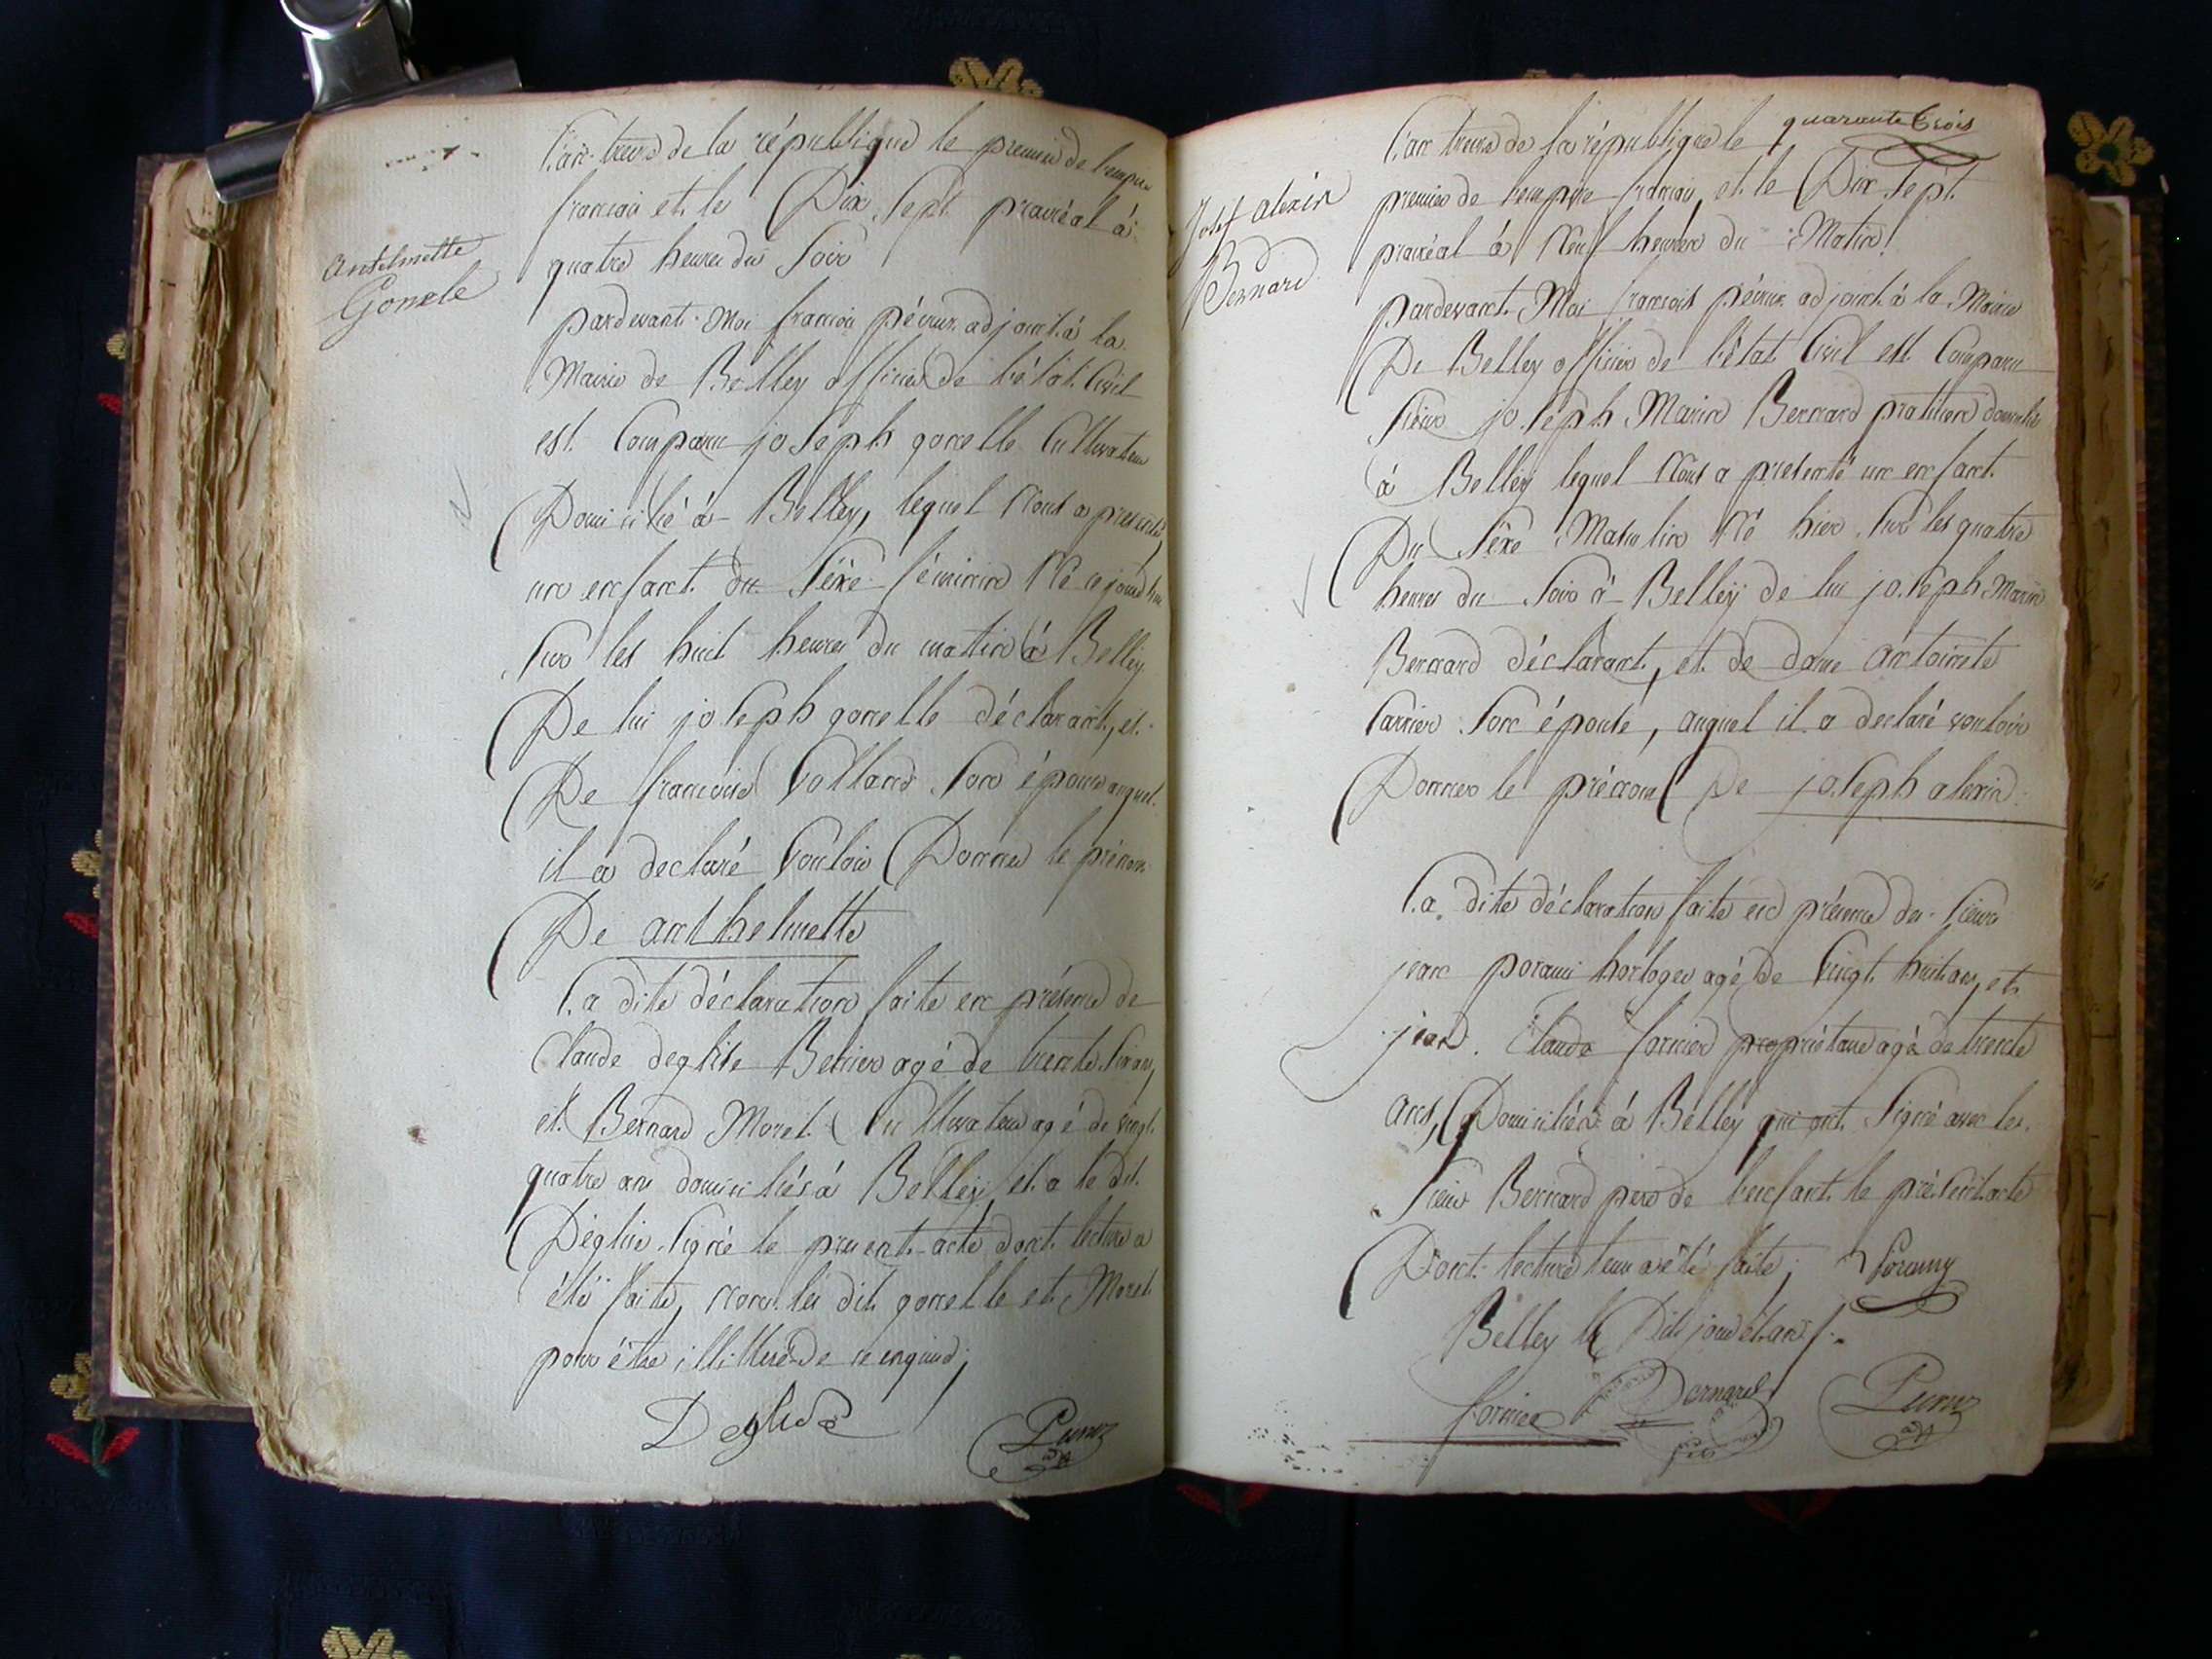 Anselmette
Gonele
L'an treize de la république le premier de l'empire
francais et le Dix Sept prairéal à
quatre heures du Soir
pardevant Moi francois pévrux adjoint à la
Mairie de Belley officier de l'état Civil
est Comparu joSeph gonelle Cultivateur
Domicilié à Belley, lequel Nous a presenté
un enfant du Séxe féminin Né cejourdhui
Sur les huit heures du matin à Belley
De lui joSeph gonelle déclarant, et
De francoise Son épouse auquel
il a declaré Vouloir Donner le prénom
De anthelmette
La dite déclaration faite en présence de
Claude deglise agé de trente Six ans,
et Bernard Moret Cultivateur agé de vingt
quatre ans domiciliés à Belley, et a le dit
Déglise Signé le present acte dont lecture a
été faite, non les dits gonelle et Moret
pour être illitturé de ce enquis;
Deglise
quarante trois
Josef alexis
Bernard
L'an treize de la république le
premier de l'empire francais, et le Dix Sept
prairéal à Neuf heures du Matin
pardevant Moi francois adjoint à la Mairie
De Belley officier de l'état Civil est Comparu
Sieur joSeph Marin Bernard praticien domicilié
à Belley lequel Nous a presenté un enfant
Du Séxe Masculin Né hier Sur les quatre
heures du Soir à Belley de lui joSeph Marin
Bernard déclarant, et de dame antoinete
Son épouse, auquel il a declaré vouloir
Donner le prénom De joSeph alexis
La dite déclaration faite en présence du Sieur
jean horloger agé de Vingt huit ans, et
jean Claude fornier propriétaire agé de trente
ans, Domiciliés à Belley qui ont Signé avec le
Sieur Bernard pere de l'enfant le préSent acte
Dont lecture leur a été faite;
Belley le Dit jour et an
fornier Bernard